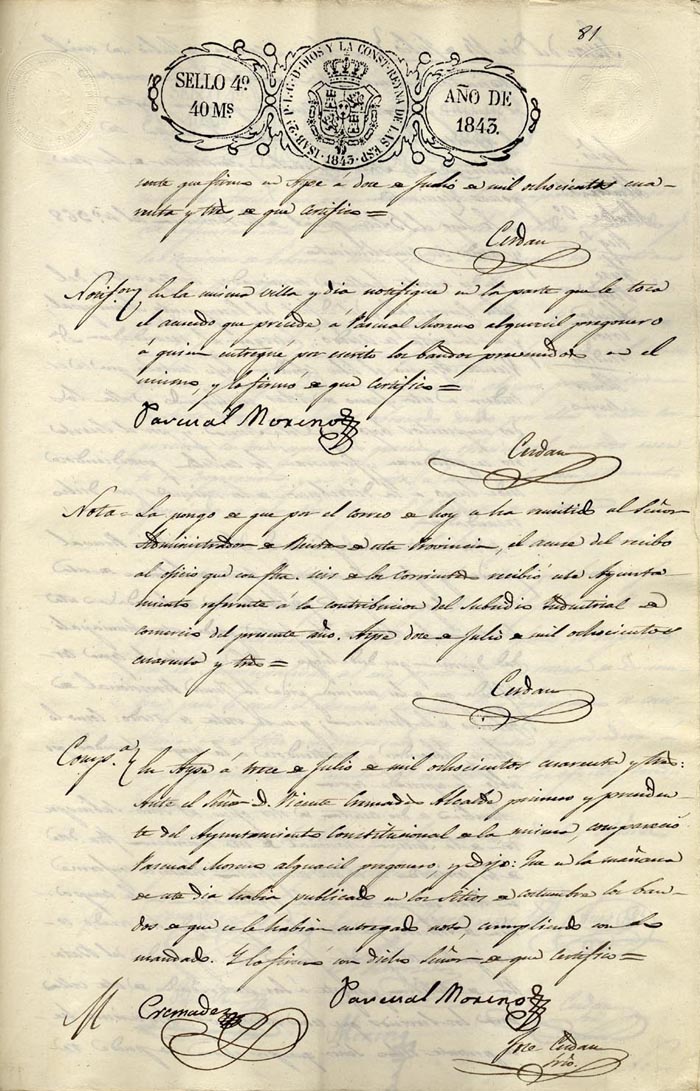 81
SELLO 4º
40 Ms
ISAB. 2ª P. L. G. D. DIOS Y LA CONST. REYNA DE LAS ESP.
1843.
AÑO DE
1843.
sente que firmo en Aspe a doce de Julio de mil ochocientos cua-
renta y tres de que certifico =
Cerdan
En la misma villa y dia notifique en la parte que le toca
el acuerdo que precede á Pascual Moreno alguacil pregonero
á quien entregué por escrito los bandos prevenidos en el
mismo, y lo firmó de que certifico =
Pascual Moreno
Cerdan
Nota = La pongo de que por el correo de hoy se ha remitido al Señor
Administrador de Rentas de esta Provincia, el acuse del recibo
al oficio que con fha. seis de los corrientes recibió este Ayunta-
miento referente á la contribucion del subsidio industrial de
comercio del presente año. Aspe doce de Julio de mil ochocientos
cuarenta y tres =
Cerdan
Comp.ª En Aspe á trece de Julio de mil ochocientos cuarenta y tres:
Ante el Señor D. Vicente Cremades Alcalde primero y presiden-
te del Ayuntamiento Constitucional de la misma, compareció
Pascual Moreno alguacil pregonero, y dijo: Que en la mañana
de este dia habia publicado en los sitios de costumbre los ban-
dos de que se le habian entregado nota, cumpliendo con lo
mandado. Y lo firmó con dicho Señor de que certifico =
Cremades
Pascual Moreno
Jose Cerdan
Srio.